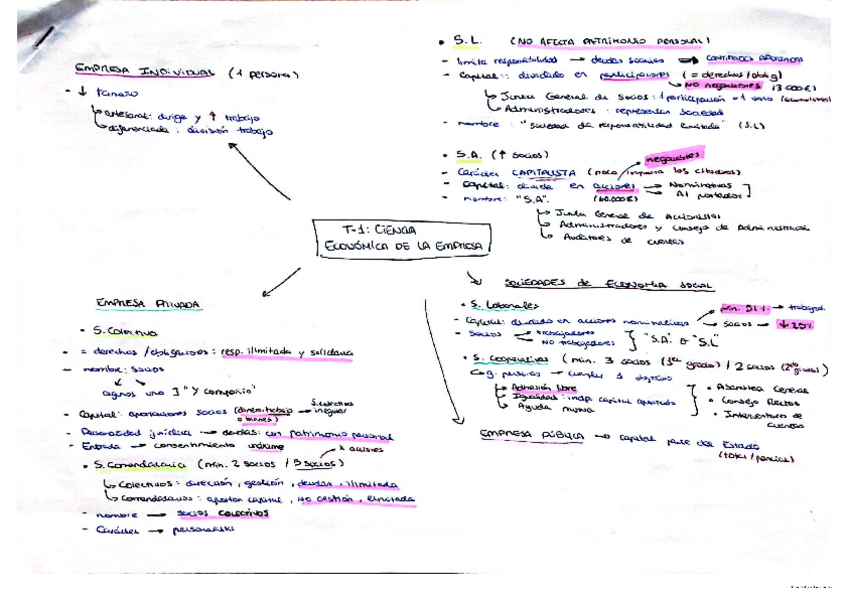 EMPRESA INDIVIDUAL (1 persona)
- ↓ tamaño
↳ artesanal: dirige y ↑ trabajo
↳ diferenciada: división trabajo
• S.L. (NO AFECTA PATRIMONIO PERSONAL)
- limita responsabilidad → deudas sociales →
- Capital: dividido en participaciones (= derechos/oblig)
↳ NO negociables (3000€)
↳ Junta General de Socios: 1 participación = 1 voto
↳ Administradores: representan sociedad
- nombre: "Sociedad de responsabilidad limitada" (S.L)
• S.A. (↑ socios)
negociables
- Carácter CAPITALISTA (no importa los
- Capital: divide en acciones → Nominativas
(60.000€) → Al portador
- nombre: "S.A".
↳ Junta General de Accionistas
↳ Administradores y Consejo de Administración
↳ Auditores de cuentas
T-1: CIENCIA
ECONÓMICA DE LA EMPRESA
EMPRESA PRIVADA
• S. Colectiva
- = derechos/obligaciones: resp. ilimitada y solidaria
- nombre: socios
algunos uno ] "y compañía"
- Capital: aportaciones socios (dinero, trabajo o bienes) →
- Personalidad jurídica → deudas: con patrimonio personal
- Entrada → consentimiento
x acciones
• S. Comanditaria (min. 2 socios / 3 socios)
↳ Colectivos: dirección, gestión, deudas, ilimitada
↳ Comanditarios: aportan capital, no gestión, limitada
- nombre → socios colectivos
- Carácter → personalista
SOCIEDADES de ECONOMÍA SOCIAL
• S. Laborales
- Capital: dividido en acciones nominativas → min. 51% → trabajad.
→ socios → ↓ 25%
- Socios → trabajadores
→ NO trabajadores } "S.A." o "S.L"
• S. Cooperativas (min. 3 socios (1er grado) / 2 socios (2do grado))
↳ Adhesión libre
↳ Igualdad: indp. capital aportado
↳ Ayuda mutua
• Asamblea General
• Consejo Rector
• Interventores de
cuentas
EMPRESA PÚBLICA → capital parte del Estado
(total/parcial)